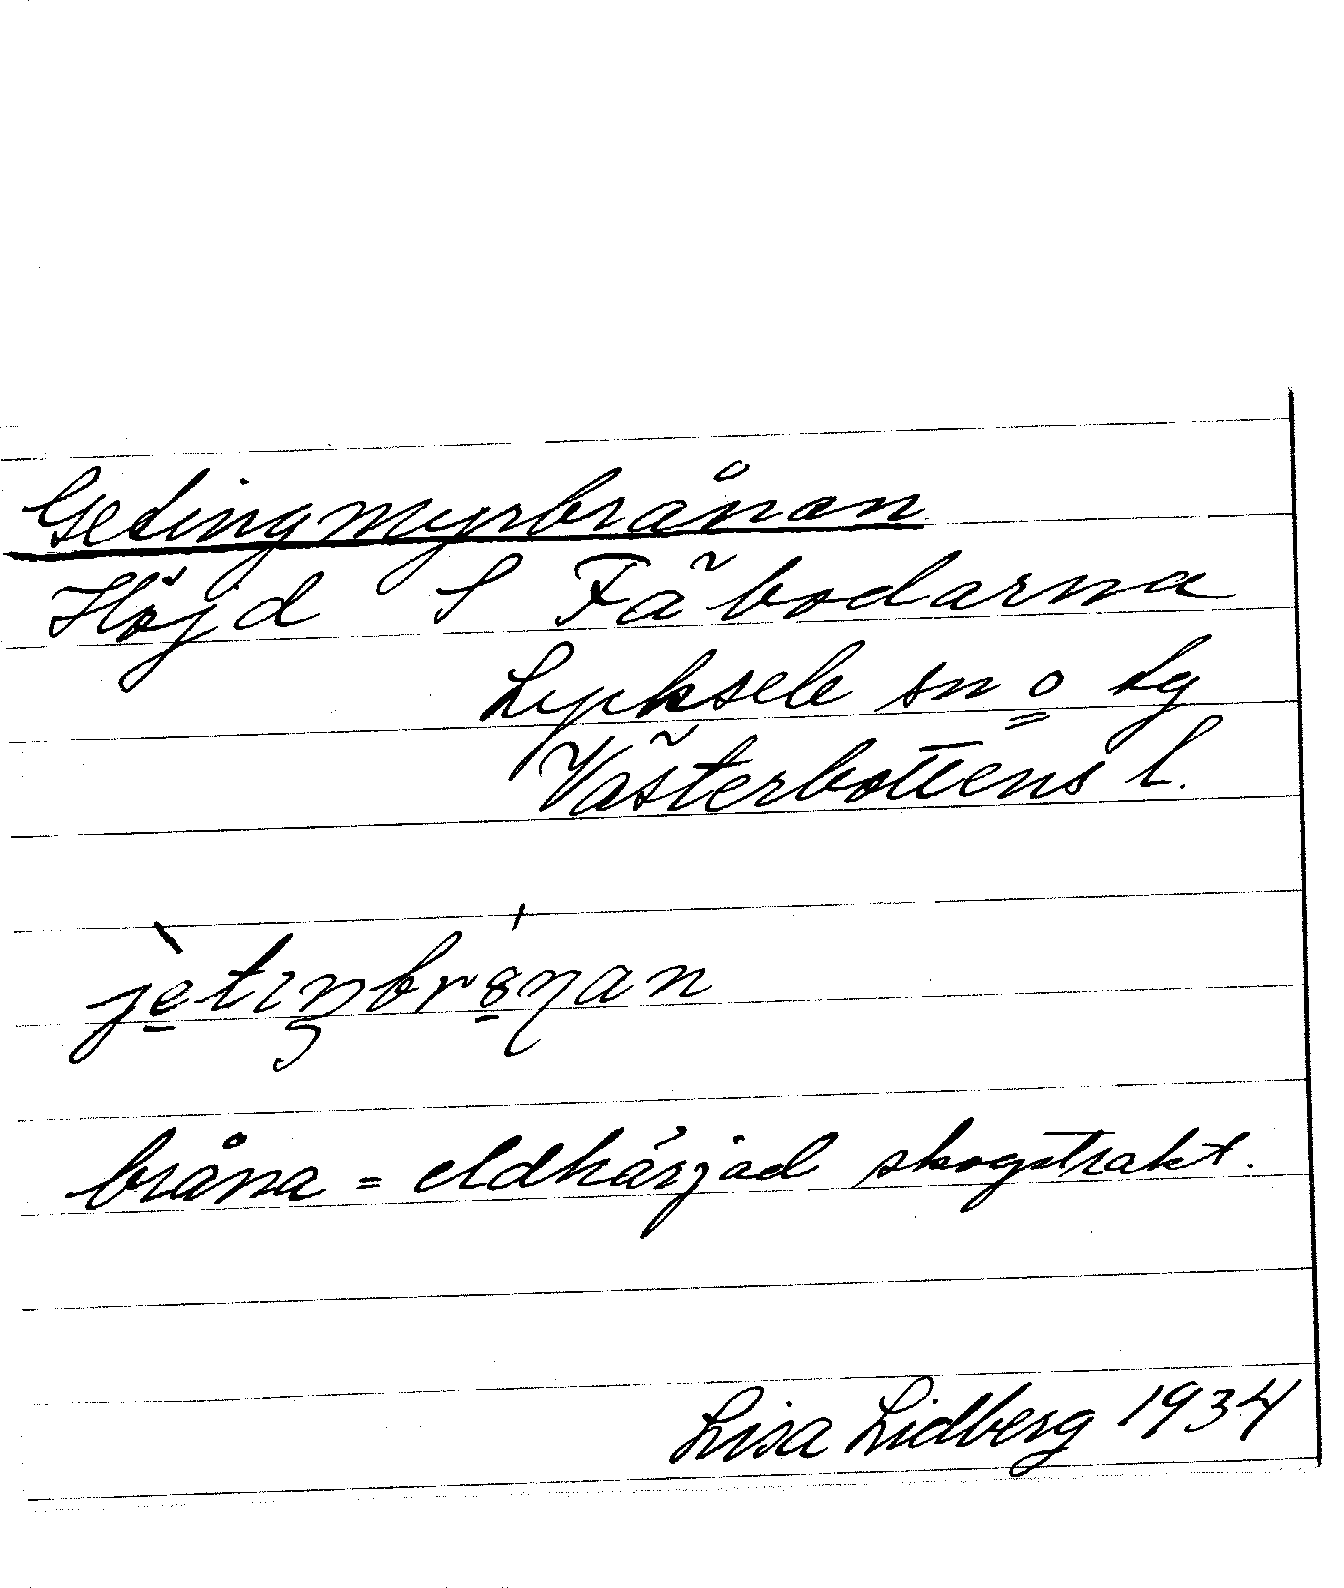 Getingmyrbrånan
Höjd S Fäbodarna
Lycksele sn o lg
Västerbottens l.
bråna = eldhärjad skogstrakt.
Lisa Lidberg 1934